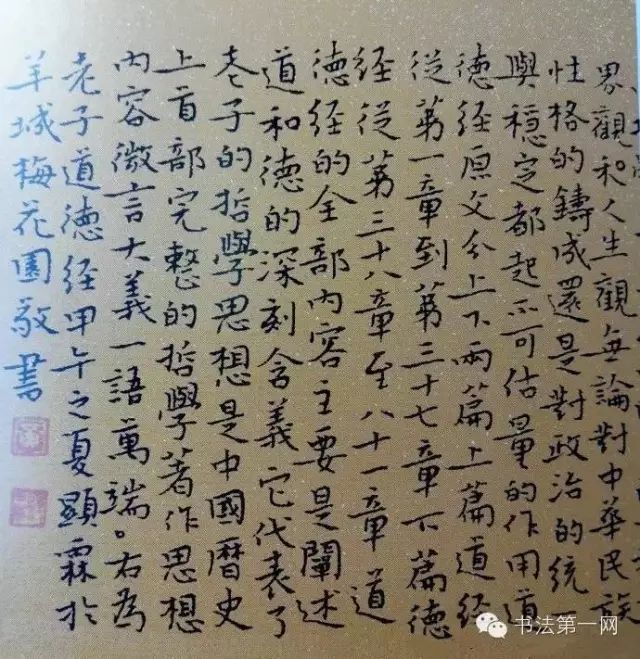 界觀和人生觀無論對中華民族
性格的鑄成還是對政治的統一
與穩定都起不可估量的作用道
德經原文分上下兩篇上篇道經
從第一章到第三十七章下篇德
經從第三十八章至八十一章道
德經的全部內容主要是闡述
道和德的深刻含義它代表了
老子的哲學思想是中國曆史
上首部完整的哲學著作思想
內容微言大義一語萬端。右為
老子道德經甲午之夏顯霖於
羊城梅花園敬書
书法第一网